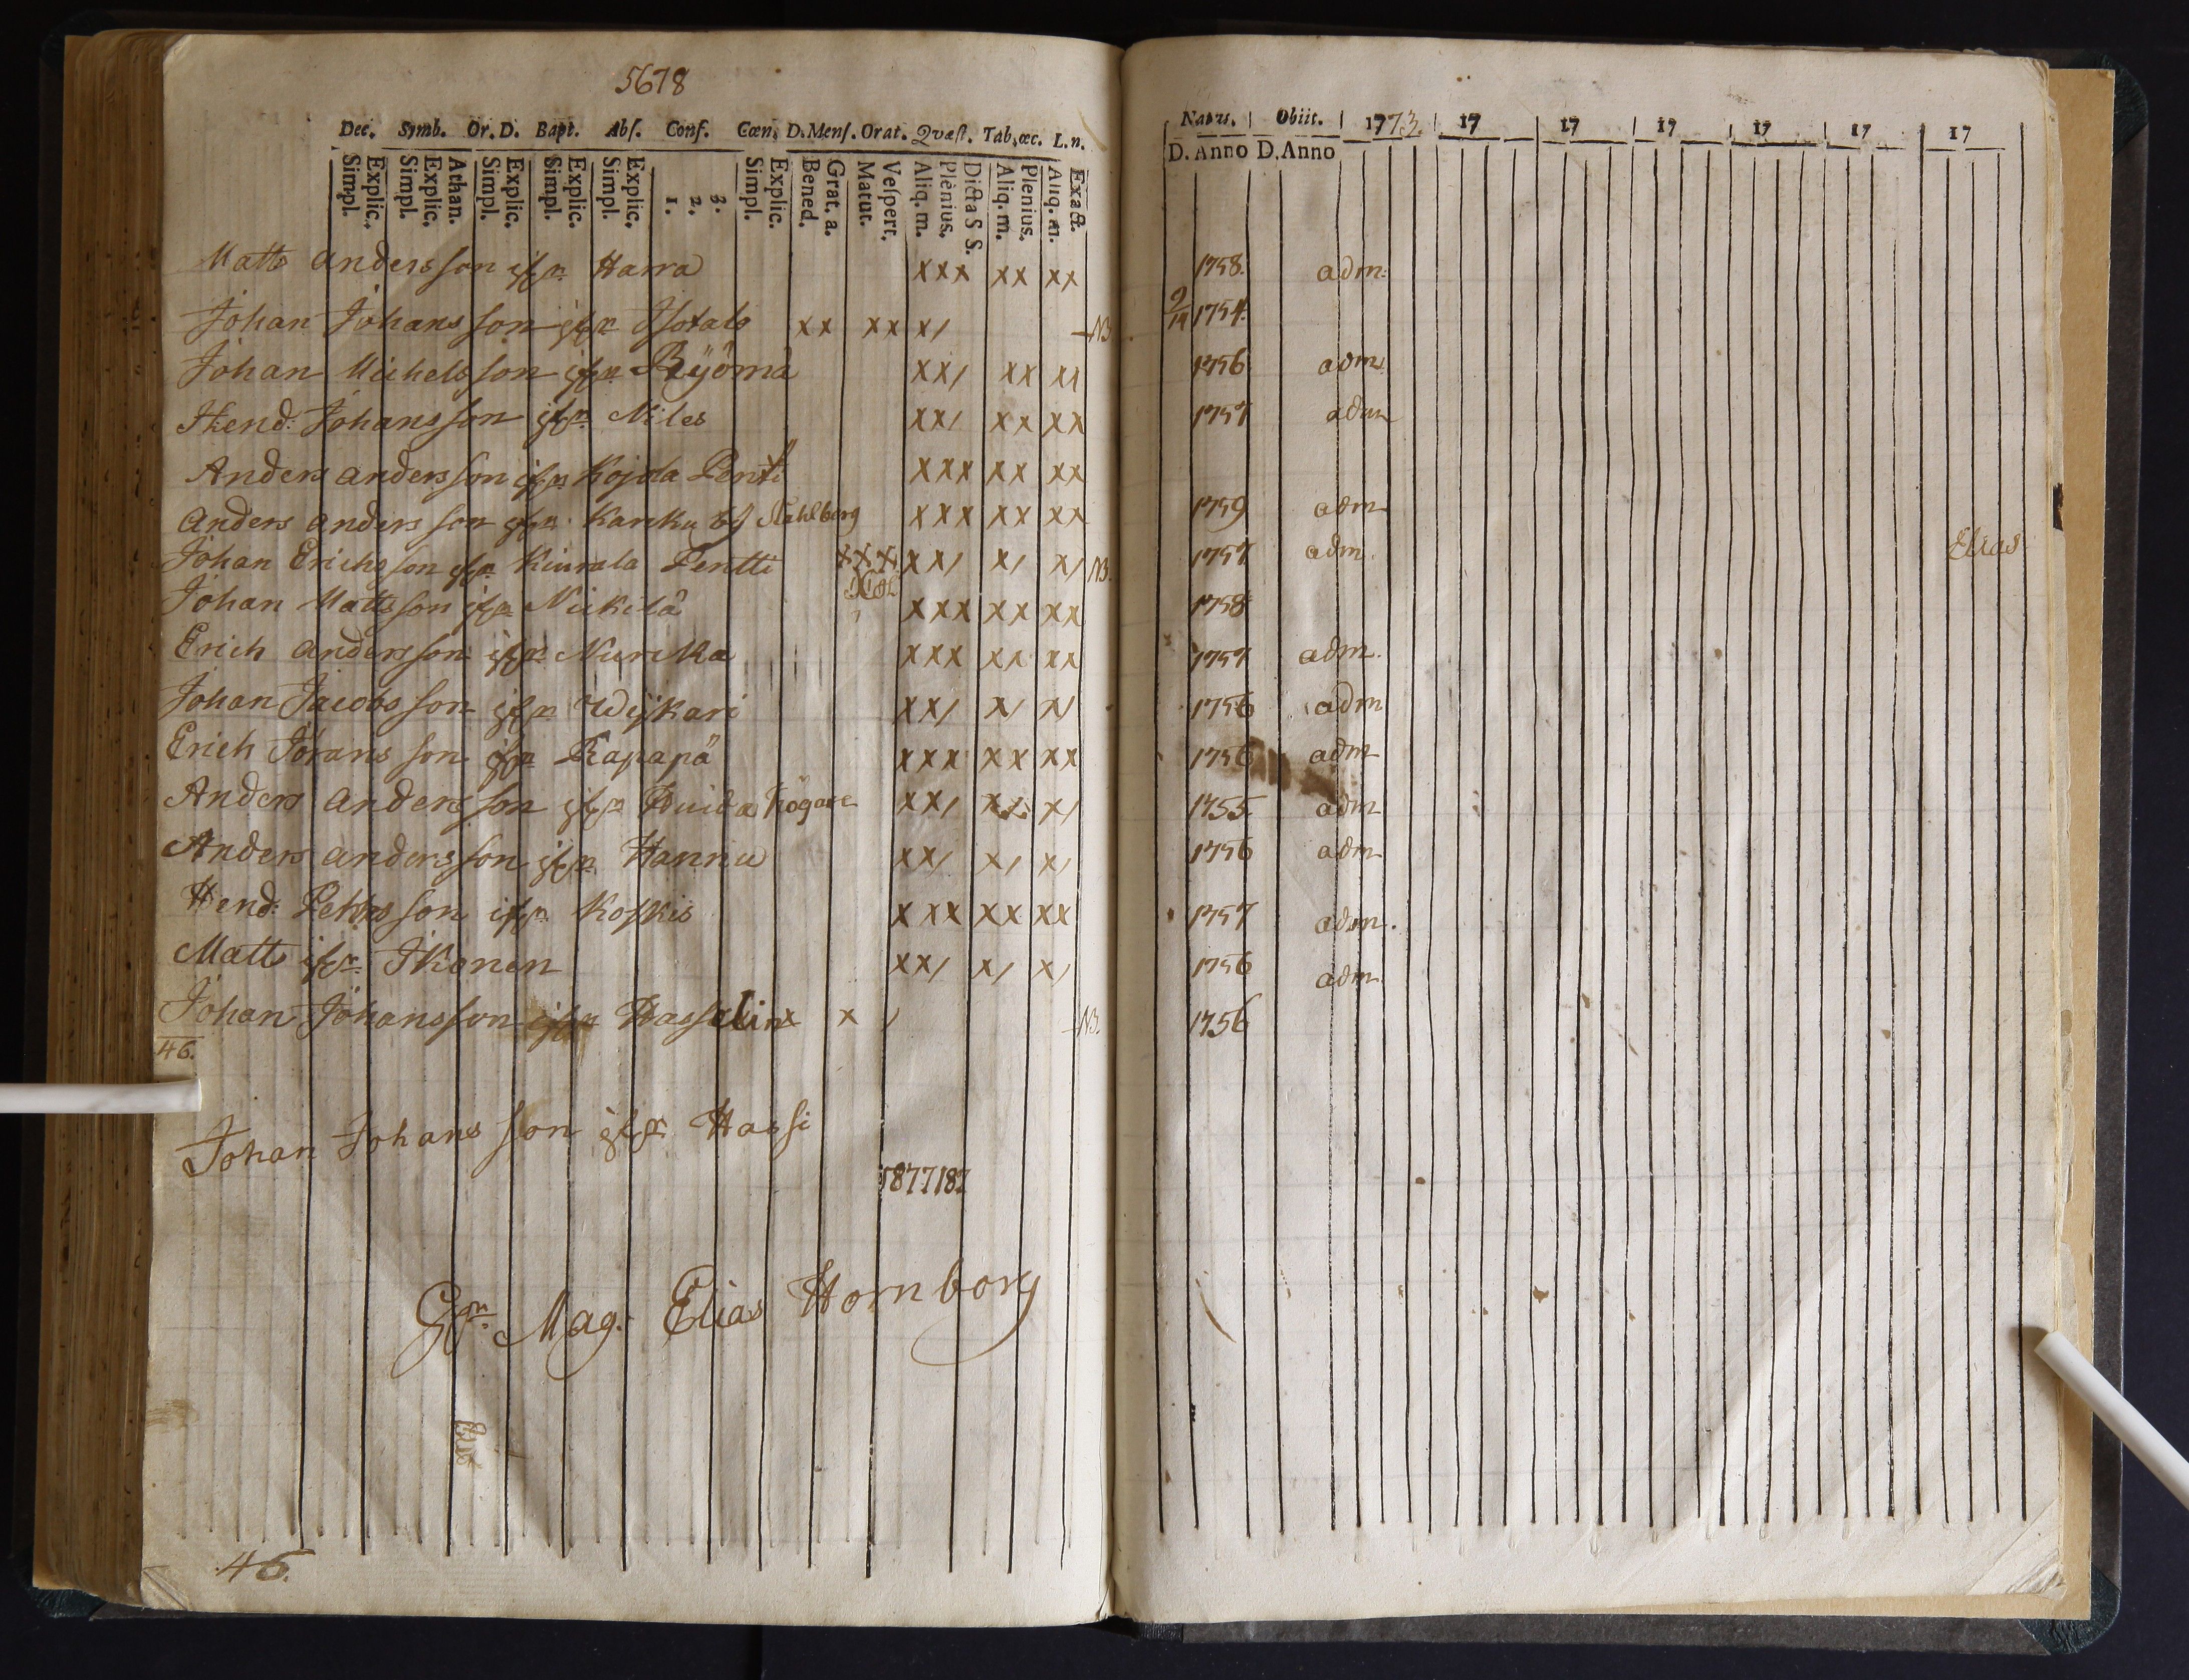 5678
Dec. Symb. Or. D. Bapt. Abs. Conf. Cœn. D. Mens. Orat. Qvæst. Tab. œc. L. n.
Simpl. Explic. Simpl. Explic. Athan. Simpl. Explic. Simpl. Explic. Simpl. Explic. 1. 2. 3. Simpl. Explic. Bened. Grat. a. Matut. Vespert. Aliq. m. Plenius. Dicta S S. Aliq. m. Plenius. Aliq. m. Exact.
Natus. Obiit. 1773. 17 17 17 17 17 17
D. Anno D. Anno
Matts Andersson Harra xxx xx xx 1758. adm.
Johan Johansson Isotalo xx xx x/ NB. 2/14 1754.
Johan Michelsson Ryömä xx/ xx xx 1756 adm.
Hend: Johansson Niles xx/ xx xx 1757 adm
Anders Andersson Kojola Pentti xxx xx xx
Anders Andersson Karku Stahlberg xxx xx xx 1759 adm
Johan Erichsson Kiurala Pentti xxx xx/ x/ x/ NB. 1757 adm. Elias
Johan Mattsson Nickilä xxx xx xx 1758
Erich Andersson Nurcka xxx xx xx 1757 adm.
Johan Jacobsson Wijkari xx/ x/ x/ 1756 adm
Erich Jöransson Rapapä xxx xx xx 1756 adm
Anders Andersson Huida Högare xx/ x/ 1755 adm
Anders Andersson Hannu xx/ x/ x/ 1756 adm
Hend: Pehrsson Koskis xxx xx xx 1757 adm.
Matts Ikonen xx/ x/ x/ 1756 adm.
Johan Johansson Hasselin x x / NB. 1756
46.
Johan Johansson Hassi
5877187
Mag. Elias Hornborg
46.